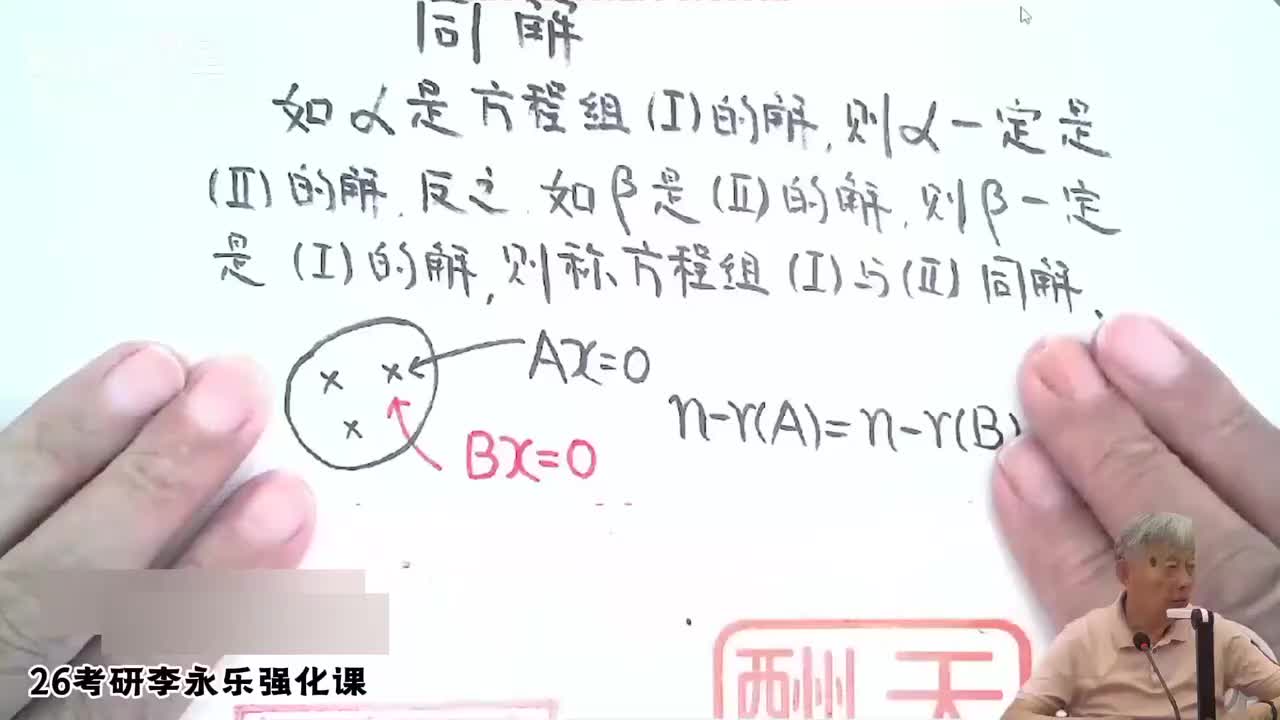 同解
如α是方程组(Ⅰ)的解,则α一定是
(Ⅱ)的解.反之.如β是(Ⅱ)的解,则β一定
是(Ⅰ)的解,则称方程组(Ⅰ)与(Ⅱ)同解.
Ax=0
n-r(A)=n-r(B)
Bx=0
26考研李永乐强化课